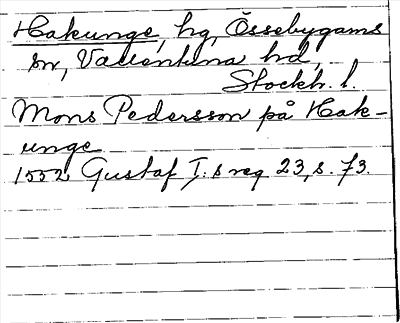 Hakunge, hg, Össebygarns
sn, Vallentuna hd,
Stockh. l.
Mons Pedersson på Hak-
unge
1552 Gustaf I:s reg 23, s. 73.